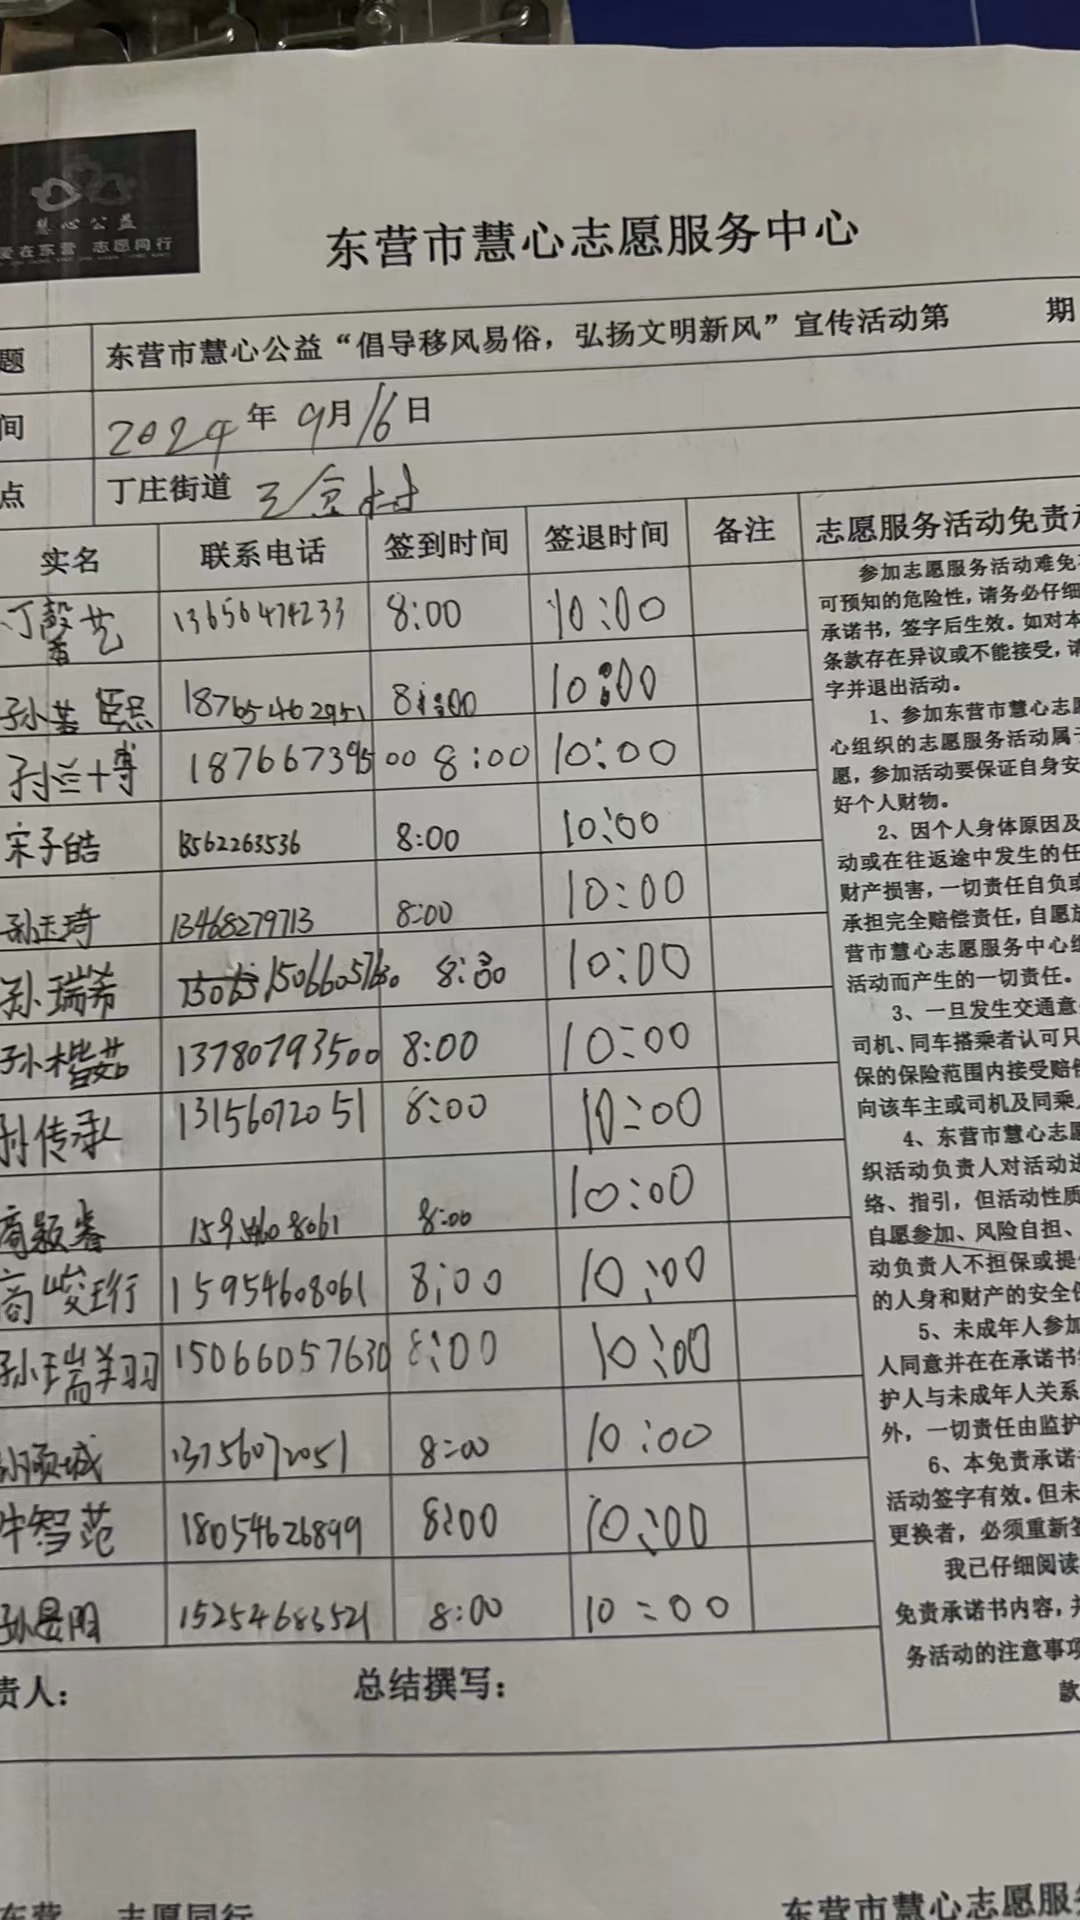 慧心公益
爱在东营 志愿同行
东营市慧心志愿服务中心
题 东营市慧心公益“倡导移风易俗，弘扬文明新风”宣传活动第 期
间 2024年 9月16日
点 丁庄街道 王 村
实名 联系电话 签到时间 签退时间 备注 志愿服务活动免责承
丁 艺 13656474233 8:00 10:00
孙 熙 18765462951 8:00 10:00
孙 博 18766739500 8:00 10:00
宋子皓 13562263536 8:00 10:00
孙玉琦 13468279713 8:00 10:00
孙瑞希 15066057630 8:30 10:00
孙楷茹 13780793500 8:00 10:00
孙传承 13156072051 8:00 10:00
商颖睿 15954608061 8:00 10:00
商峻珩 15954608061 8:00 10:00
孙瑞翔 15066057630 8:00 10:00
孙倾城 13156072051 8:00 10:00
牛智范 18054626899 8:00 10:00
孙 15254683521 8:00 10:00
参加志愿服务活动难免
可预知的危险性，请务必仔细
承诺书，签字后生效。如对本
条款存在异议或不能接受，请
字并退出活动。
1、参加东营市慧心志愿
心组织的志愿服务活动属于
愿，参加活动要保证自身安
好个人财物。
2、因个人身体原因及
动或在往返途中发生的任
财产损害，一切责任自负或
承担完全赔偿责任，自愿放
营市慧心志愿服务中心组
活动而产生的一切责任。
3、一旦发生交通意
司机、同车搭乘者认可只
保的保险范围内接受赔偿
向该车主或司机及同乘
4、东营市慧心志愿
织活动负责人对活动进
络、指引，但活动性质
自愿参加、风险自担、
动负责人不担保或提
的人身和财产的安全
5、未成年人参加
人同意并在在承诺书
护人与未成年人关系
外，一切责任由监护
6、本免责承诺
活动签字有效。但未
更换者，必须重新签
我已仔细阅读
免责承诺书内容，并
务活动的注意事项
款
责人： 总结撰写：
东营 志愿同行 东营市慧心志愿服